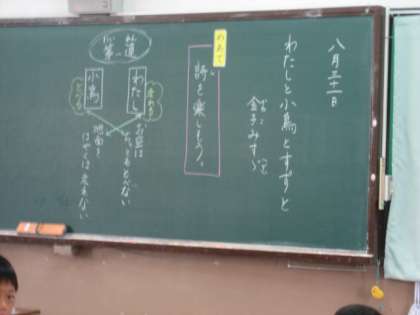 八月三十一日
わたしと小鳥とすずと
金子みすゞ
めあて
詩を楽しもう。
第一連
わたし
走れる
お空は
ちっともとべない
小鳥
とべる
地面を
はやくは走れない